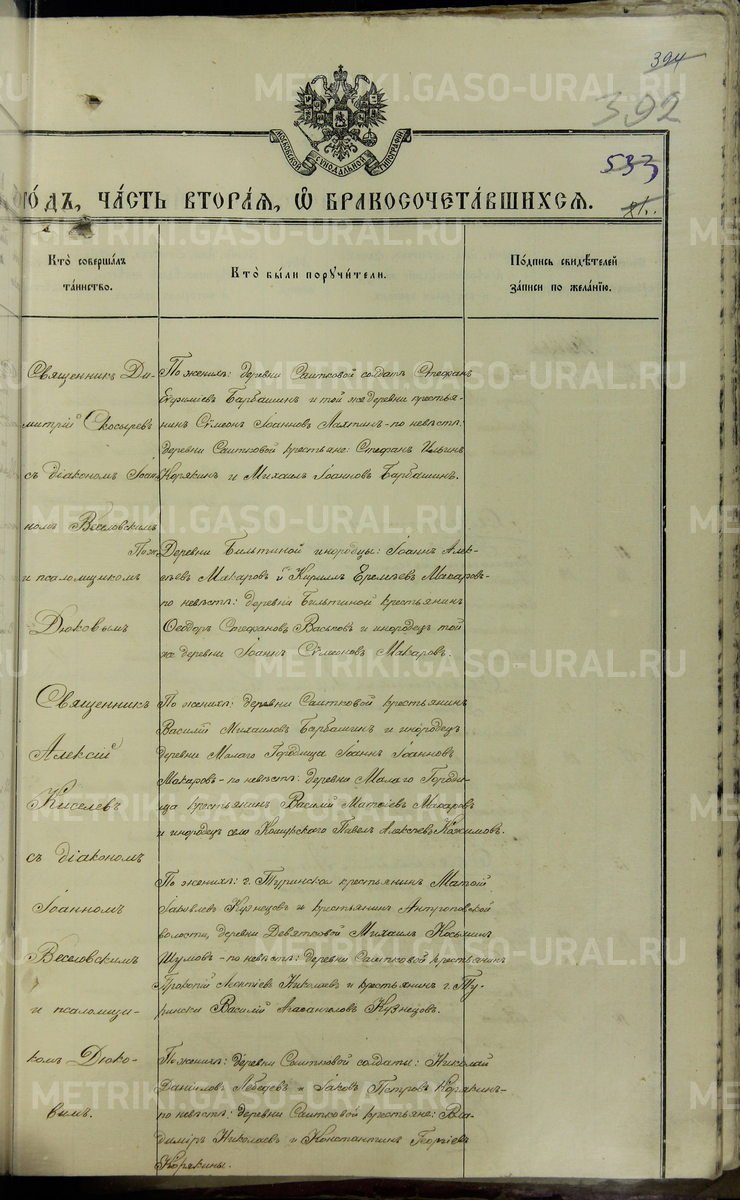 394
392
533
МОСКОВСКОЙ СѴНОДАЛЬНОЙ ТИПОГРАФІИ
го́дъ, ча́сть втора́я, ѽ бракосочета́вшихся.
Кто̀ соверша́лъ
та́инство.
Кто̀ бы́ли порꙋчи́тели.
По́дпись свидѣ́телей
за́писи по жела́нїю.
Священникъ Ди-
митрій Скосыревъ
съ діакономъ Іоан-
номъ Веселовскимъ
и псаломщикомъ
Дюковымъ
По женихѣ: деревни Саитковой солдатъ Стефанъ
Ефиміевъ Барбашинъ и той же деревни крестья-
нинъ Сѵмеонъ Іоанновъ Лаптинъ - по невѣстѣ:
деревни Саитковой крестьяне: Стефанъ Ильинъ
Корякинъ и Михаилъ Іоанновъ Барбашинъ.
По ж.
Деревни Бильтиной инородцы: Іоаннъ Алек-
сѣевъ Макаровъ и Кириллъ Еремѣевъ Макаровъ -
по невѣстѣ: деревни Бильтиной крестьянинъ
Ѳеодоръ Стефановъ Васьковъ и инородецъ той
же деревни Іоаннъ Сѵмеоновъ Макаровъ.
Священникъ
Алексій
Киселевъ
съ діакономъ
Іоанномъ
Веселовскимъ
и псаломщи-
комъ Дюко-
вымъ.
По женихѣ: деревни Саитковой крестьянинъ
Василій Михаиловъ Барбашинъ и инородецъ
деревни Малаго Городища Іоаннъ Іоанновъ
Макаровъ - по невѣстѣ: деревни Малаго Городи-
ща крестьянинъ Василій Матѳіевъ Макаровъ
и инородецъ села Кошукскаго Павелъ Алексѣевъ Кажимовъ.
По женихѣ: г. Туринска крестьянинъ Матѳій
Іаковлевъ Кузнецовъ и крестьянинъ Антроповской
волости, деревни Девятковой Михаилъ Косьминъ
Шумовъ - по невѣстѣ: деревни Саитковой крестьянинъ
Прокопій Леонтіевъ Николаевъ и крестьянинъ г. Ту-
ринска Василій Агаѳангеловъ Кузнецовъ.
По женихѣ: деревни Саитковой солдаты: Николай
Даніиловъ Лебедевъ и Іаковъ Петровъ Корякинъ -
по невѣстѣ: деревни Саитковой крестьяне: Вла-
димиръ Николаевъ и Константинъ Георгіевъ
Корякины.
METRIKI.GASO-URAL.RU